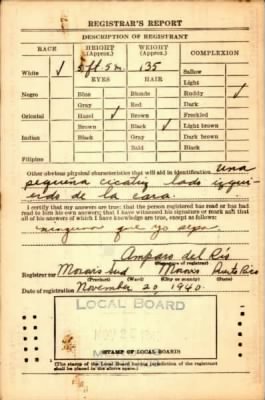 REGISTRAR'S REPORT
DESCRIPTION OF REGISTRANT
RACE HEIGHT (Approx.) WEIGHT (Approx.) COMPLEXION
White ✓ 5 ft. 5 in. 135 Sallow
Light
EYES HAIR Ruddy ✓
Negro Blue Blonde Dark
Gray Red Freckled
Oriental Hazel ✓ Brown Light brown
Brown Black ✓ Dark brown
Indian Black Gray Black
Bald
Filipino
Other obvious physical characteristics that will aid in identification Una
pequeña cicatriz lado izqui-
erdo de la cara.
I certify that my answers are true; that the person registered has read or has had
read to him his own answers; that I have witnessed his signature or mark and that
all of his answers of which I have knowledge are true, except as follows:
ninguna que yo sepa.
Amparo del Rís
(Signature of registrar)
Registrar for Morovis Sud Morovis Puerto Rico
(Precinct) (Ward) (City or county) (State)
Date of registration November 20, 1940.
LOCAL BOARD
STAMP OF LOCAL BOARD
(The stamp of the Local Board having jurisdiction of the registrant
shall be placed in the above space.)